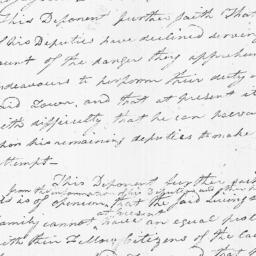 This Deponent further saith That
his Deputies have declined serving
ount of the danger they apprehen
ndeavours to perform their duty in
aid Town, and that at present it
ith difficulty that he can perva
pon his remaining deputies to make
ttempt—
This Deponent further saith
from the information of his Deputies and other
is of opinion, that the said Livings
family cannot at present have an equal prot
ith their Fellow Citizens of the